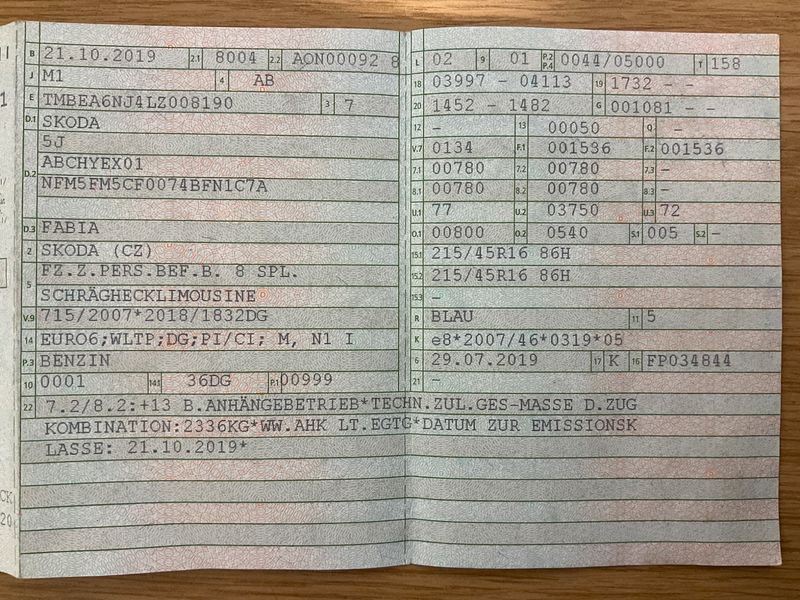 B 21.10.2019 2.1 8004 2.2 AON00092 8
J M1 4 AB
E TMBEA6NJ4LZ008190 3 7
D.1 SKODA
D.2 5J
ABCHYEX01
NFM5FM5CF0074BFN1C7A
D.3 FABIA
2 SKODA (CZ)
5 FZ.Z.PERS.BEF.B. 8 SPL.
SCHRÄGHECKLIMOUSINE
V.9 715/2007*2018/1832DG
14 EURO6;WLTP;DG;PI/CI; M, N1 I
P.3 BENZIN
10 0001 14.1 36DG P.1 00999
L 02 9 01 P.2 P.4 0044/05000 T 158
18 03997 - 04113 19 1732 - -
20 1452 - 1482 G 001081 - -
12 - 13 00050 Q -
V.7 0134 F.1 001536 F.2 001536
7.1 00780 7.2 00780 7.3 -
8.1 00780 8.2 00780 8.3 -
U.1 77 U.2 03750 U.3 72
O.1 00800 O.2 0540 S.1 005 S.2 -
15.1 215/45R16 86H
15.2 215/45R16 86H
15.3 -
R BLAU 11 5
K e8*2007/46*0319*05
6 29.07.2019 17 K 16 FP034844
21 -
22 7.2/8.2:+13 B.ANHÄNGEBETRIEB*TECHN.ZUL.GES-MASSE D.ZUG
KOMBINATION:2336KG*WW.AHK LT.EGTG*DATUM ZUR EMISSIONSK
LASSE: 21.10.2019*